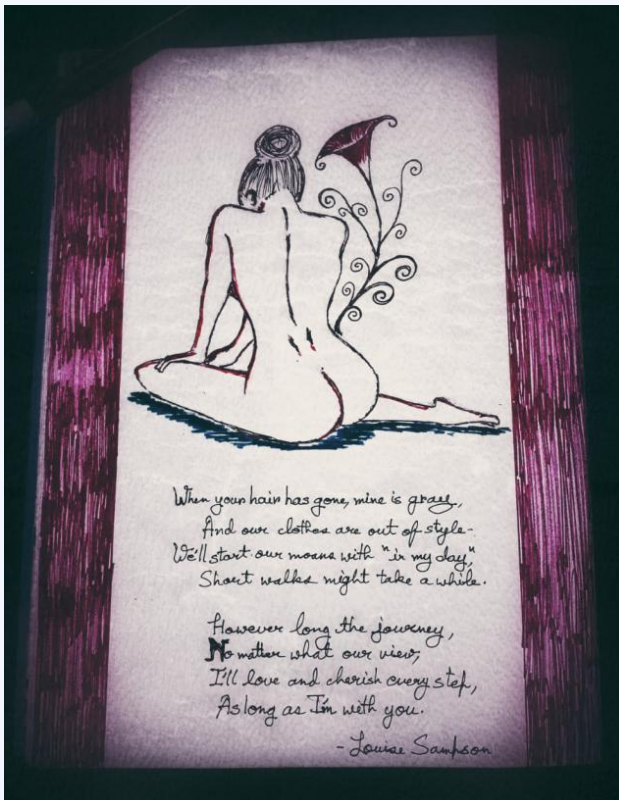 When your hair has gone, mine is gray,
And our clothes are out of style-
We'll start our moans with "in my day",
Short walks might take a while.
However long the journey,
No matter what our view,
I'll love and cherish every step,
As long as I'm with you.
- Louise Sampson